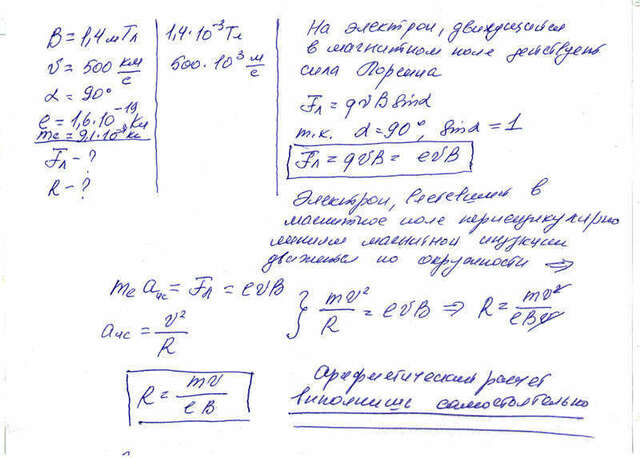 B = 1,4 мТл
1,4·10⁻³ Тл
v = 500 км/с
500·10³ м/с
α = 90°
e = 1,6·10⁻¹⁹ Кл
mе = 9,1·10⁻³¹ кг
Fл - ?
R - ?
На электрон, движущийся
в магнитном поле действует
сила Лоренца
Fл = qvB sinα
т.к. α = 90°, sinα = 1
Fл = qvB = evB
Электрон, влетевший в
магнитное поле перпендикулярно
линиям магнитной индукции
движется по окружности ⇒
mе aцс = Fл = evB
aцс = v²/R
{ mv²/R = evB ⇒ R = mv²/eBv
R = mv/eB
Арифметический расчет
выполнишь самостоятельно